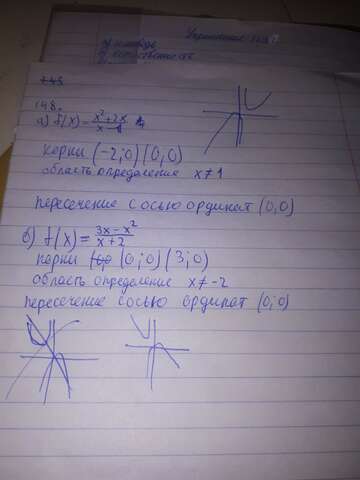 148.
а) f(x) = x²+2x / x-1
корни (-2;0) (0,0)
область определения x≠1
пересечение с осью ординат (0,0)
б) f(x) = 3x-x² / x+2
корни (0;0) (3;0)
область определения x≠-2
пересечение с осью ординат (0;0)